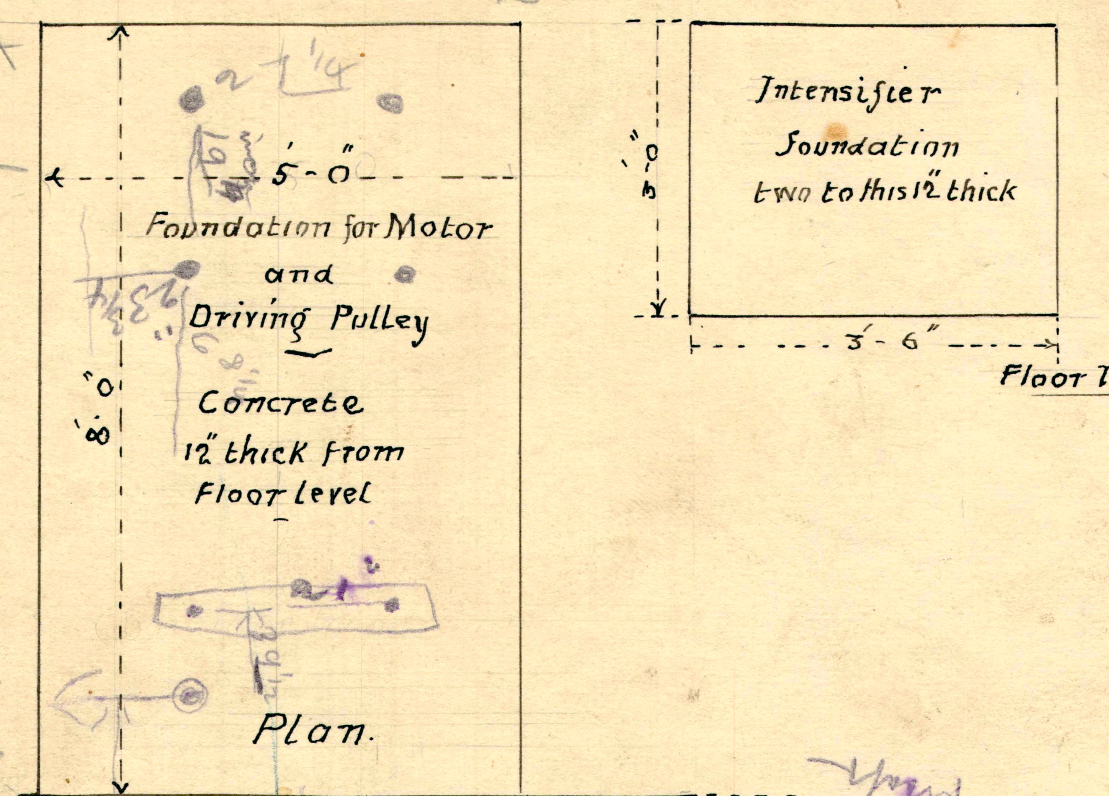 5'-0"
Foundation for Motor
and
Driving Pulley
Concrete
12" thick from
Floor level
8'.0"
Plan.
Intensifier
foundation
two to this 12" thick
3'-0"
3'-6"
Floor
2 1/4
19
9 3/4